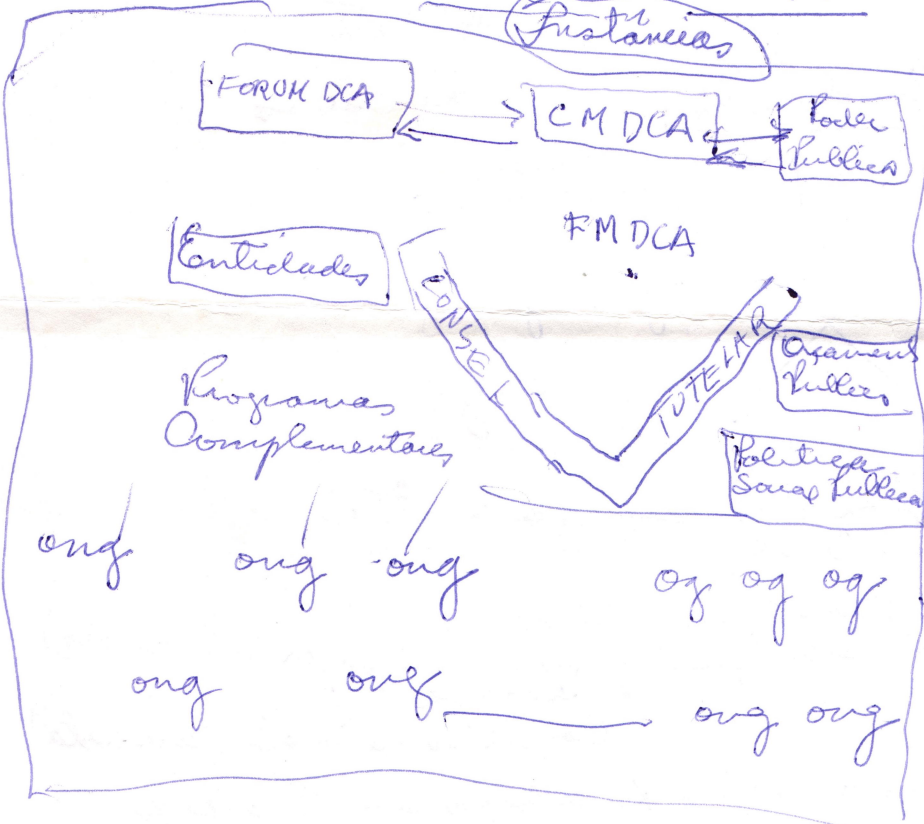 Instâncias
FORUM DCA
CMDCA
Poder
Publico
FMDCA
Entidades
CONSEL
TUTELAR
Publico
Programas
Complementares
Politica
Publica
ong
ong
ong
og og og
ong
ong
ong ong